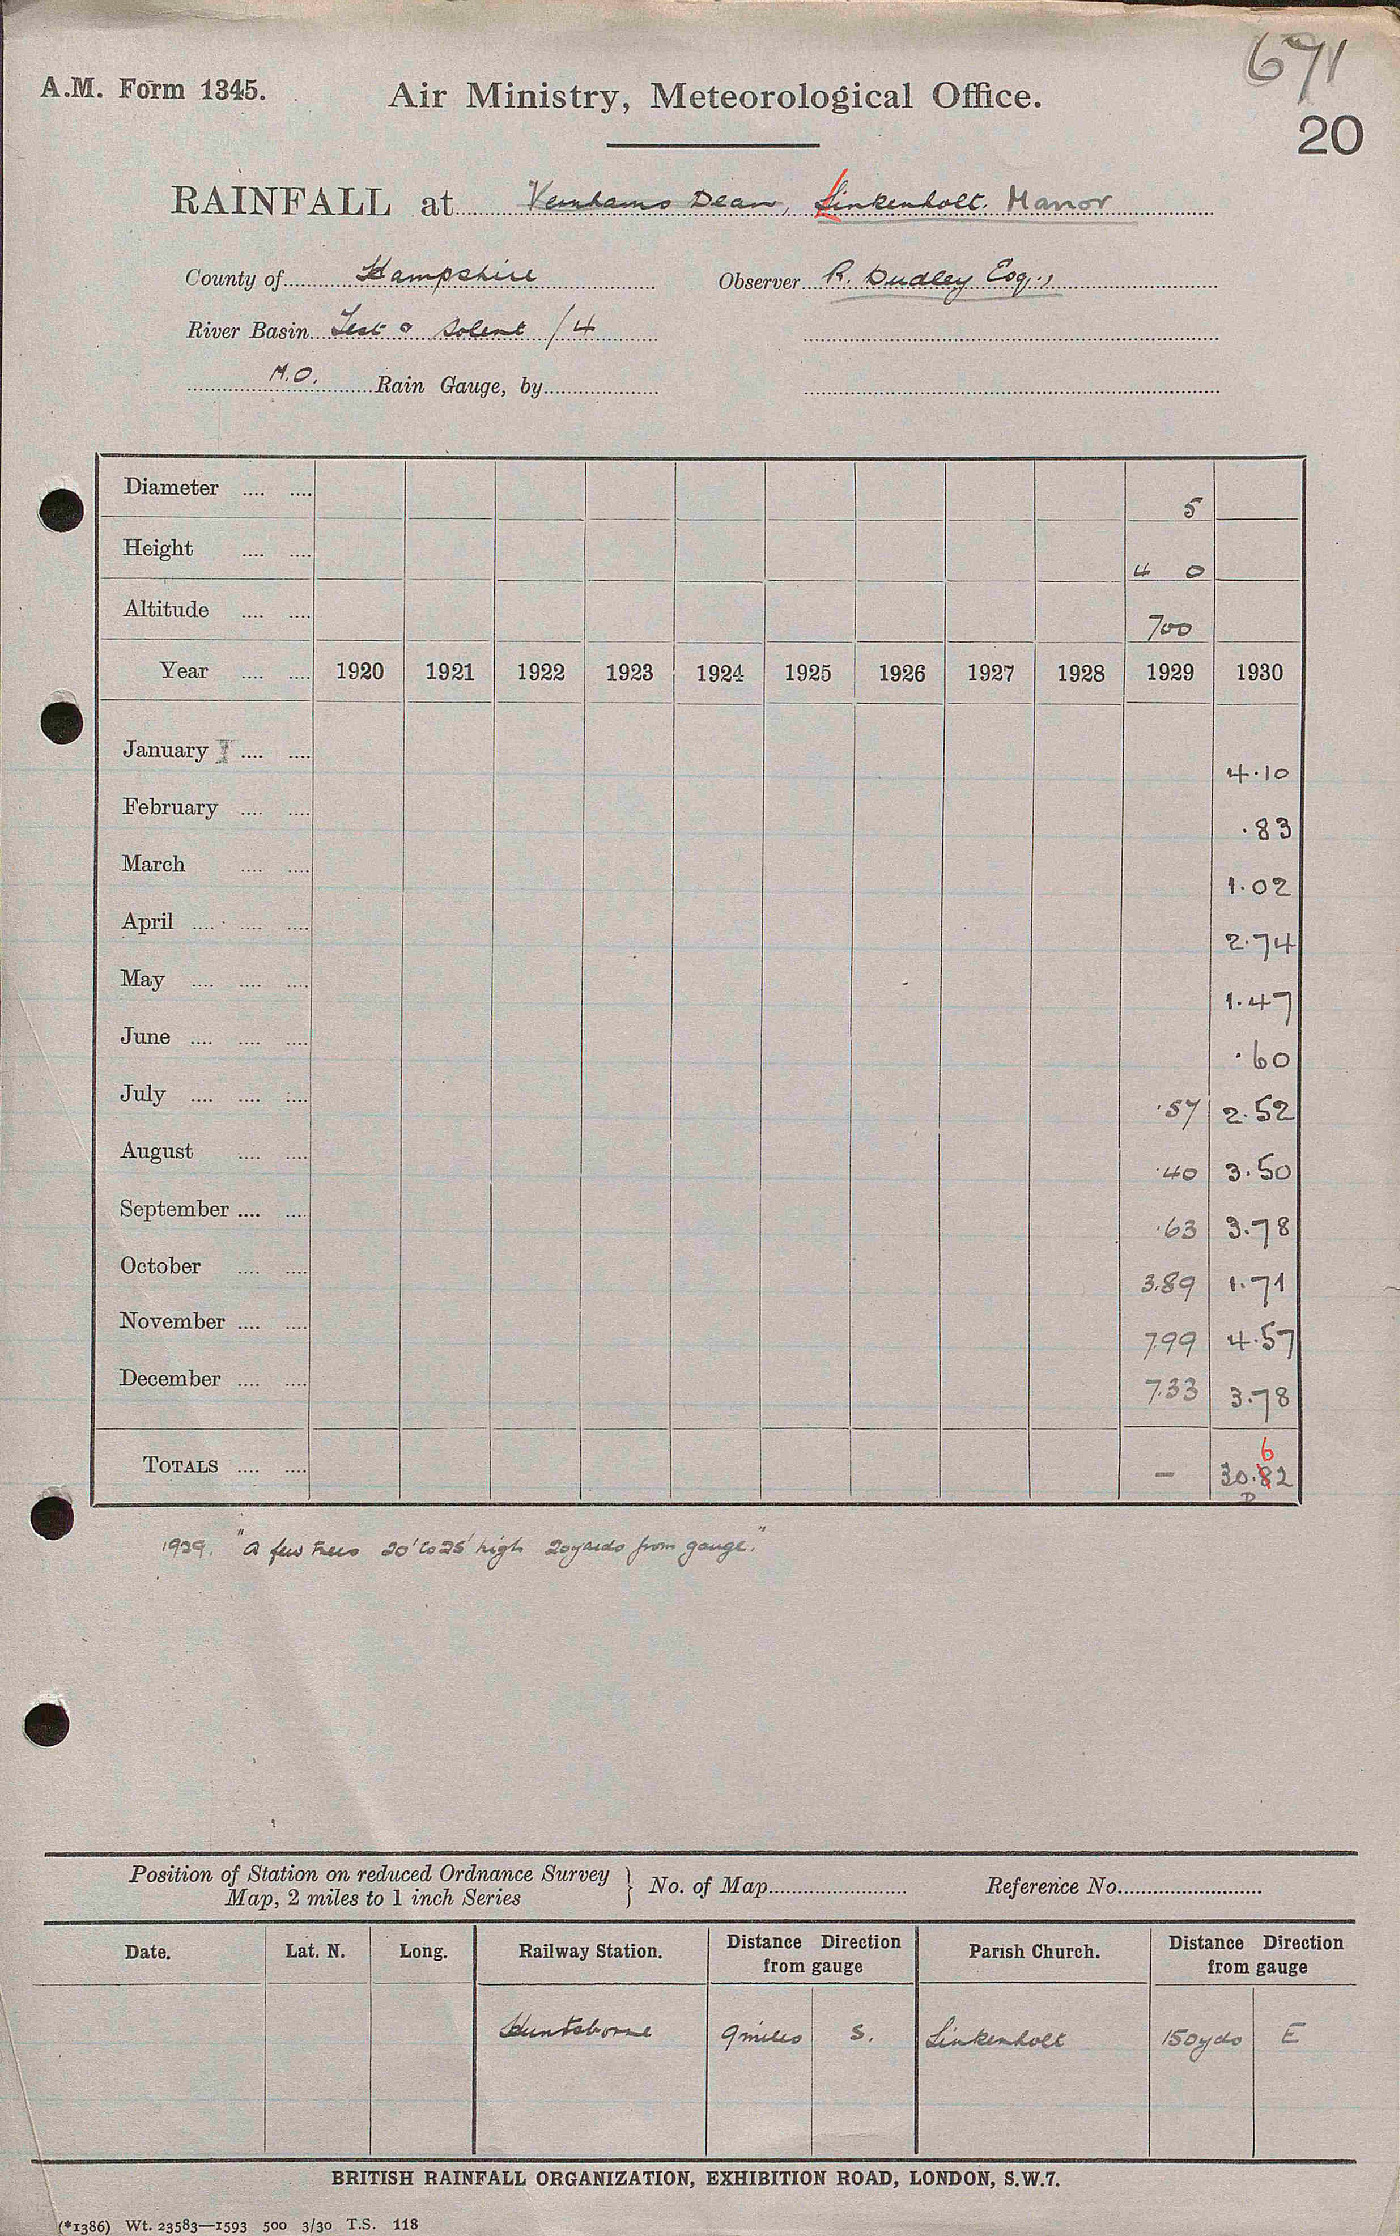 671
A.M. Form 1345.
Air Ministry, Meteorological Office.
20
RAINFALL at Vernhams Dean, Linkenholt. Manor
County of Hampshire Observer R. Dudley Esq.,
River Basin Test & Solent /4
M.O. Rain Gauge, by
Diameter .... .... 5
Height .... .... 4 0
Altitude .... .... 700
Year .... .... 1920 1921 1922 1923 1924 1925 1926 1927 1928 1929 1930
January .... .... 4.10
February .... .... .83
March .... .... 1.02
April .... .... .... 2.74
May .... .... .... 1.47
June .... .... .... .60
July .... .... .... .57 2.52
August .... .... .40 3.50
September .... .... .63 3.78
October .... .... 3.89 1.71
November .... .... 7.99 4.57
December .... .... 7.33 3.78
6
TOTALS .... .... — 30.82
1929. "A few trees 20' to 25' high 20 yards from gauge."
Position of Station on reduced Ordnance Survey
Map, 2 miles to 1 inch Series } No. of Map Reference No.
Date. Lat. N. Long. Railway Station. Distance Direction from gauge Parish Church. Distance Direction from gauge
9 miles S. Linkenholt 150 yds E
BRITISH RAINFALL ORGANIZATION, EXHIBITION ROAD, LONDON, S.W.7.
(*1386) Wt. 23583—1593 500 3/30 T.S. 118